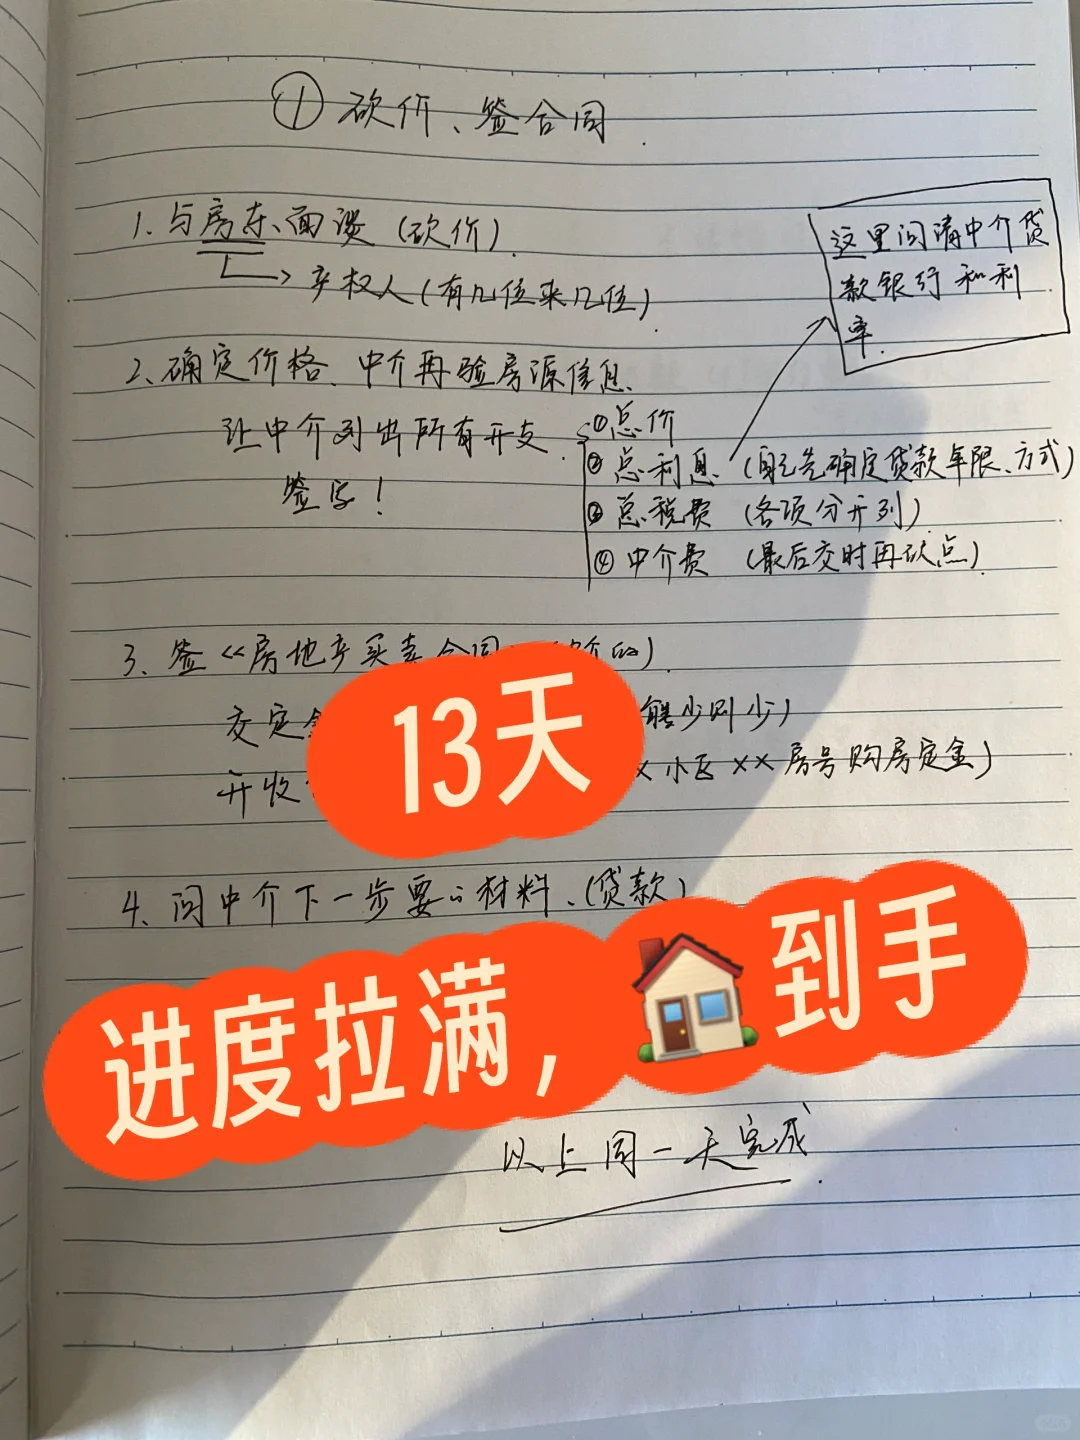 ① 砍价、签合同.
1. 与房东、面谈（砍价）.
产权人（有几位来几位）.
这里问清中介贷
款银行和利
率.
2、确定价格、中介再验房源信息.
让中介列出所有开支.
签字！
①总价
②总利息（自己先确定贷款年限、方式）
③总税费（各项分开列）.
④中介费（最后交时再砍点）.
3、签《房地产买卖合同
交定 能少则少）
开收 小区××房号购房定金）
13天
4、问中介下一步要的材料.（贷款）
进度拉满，🏠到手
以上同一天完成.